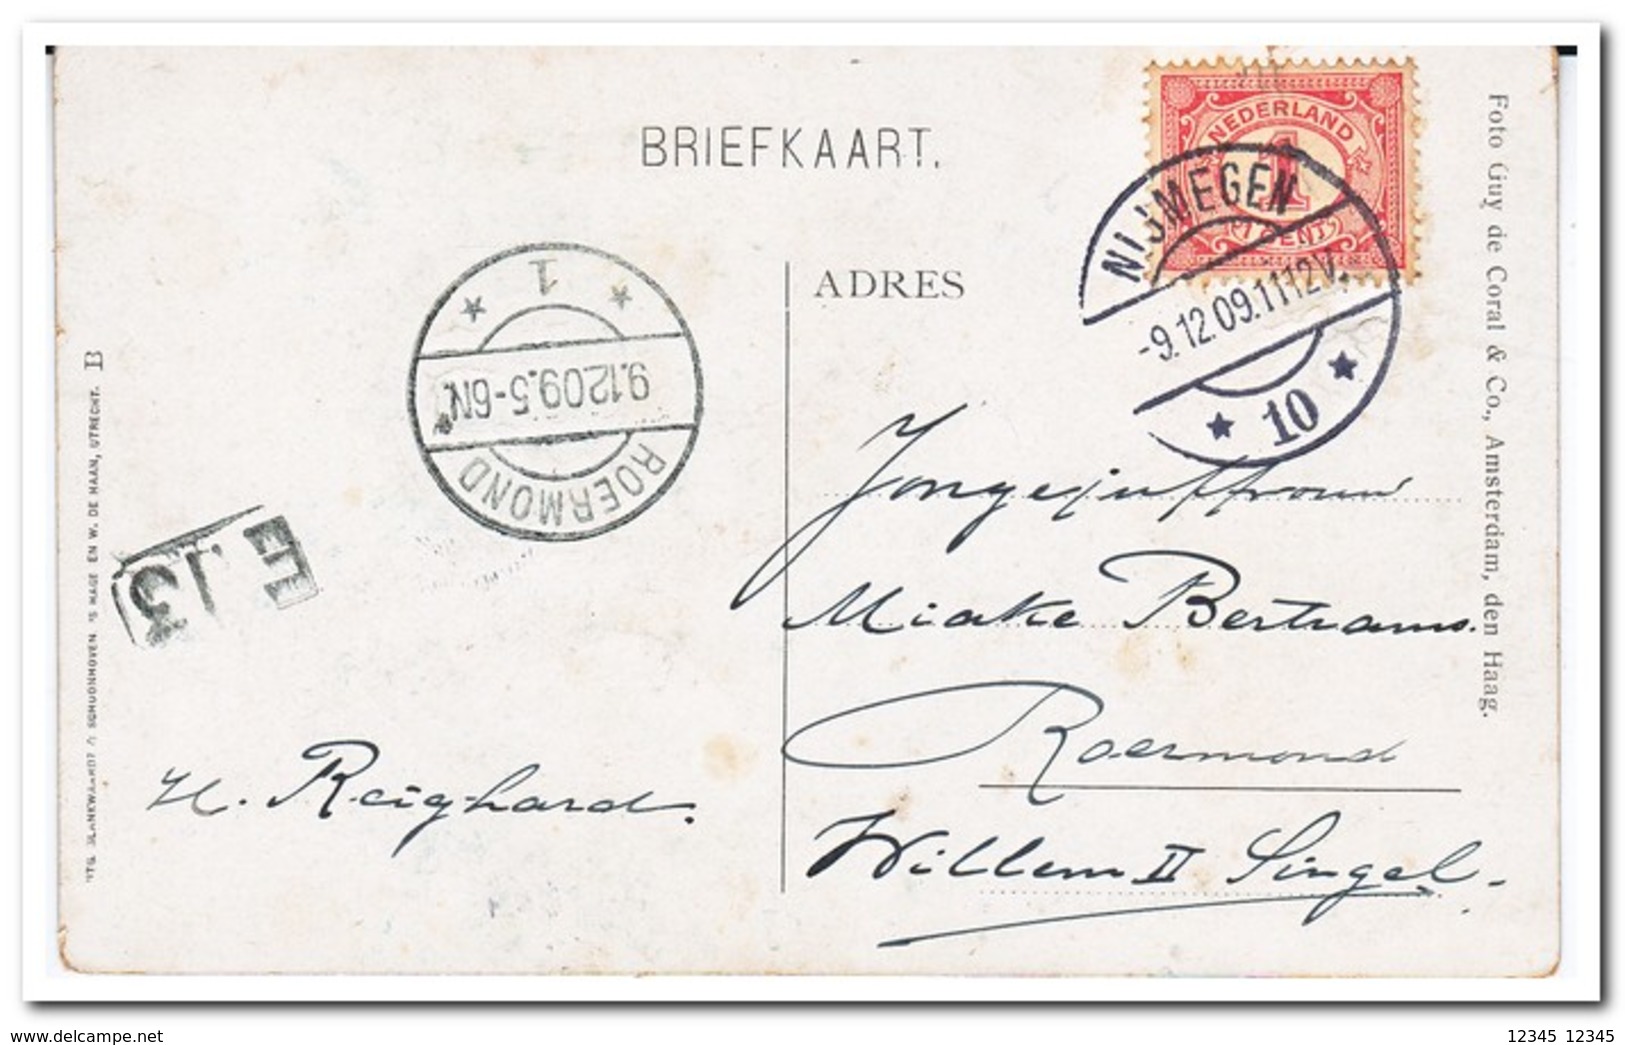 BRIEFKAART.
NEDERLAND
1
1 CENT
NIJMEGEN
-9.12.09.1112V.
10
ROERMOND
9.12.09.5-6N
1
ADRES
Jongejuffrouw
Mieke Bertrams.
Roermond
Willem II Singel.
H. Reighard.
Foto Guy de Coral & Co., Amsterdam, den Haag.
SCHOONHOVEN 'S HAGE EN W. DE HAAN, UTRECHT. B
delcampe.net
12345 12345